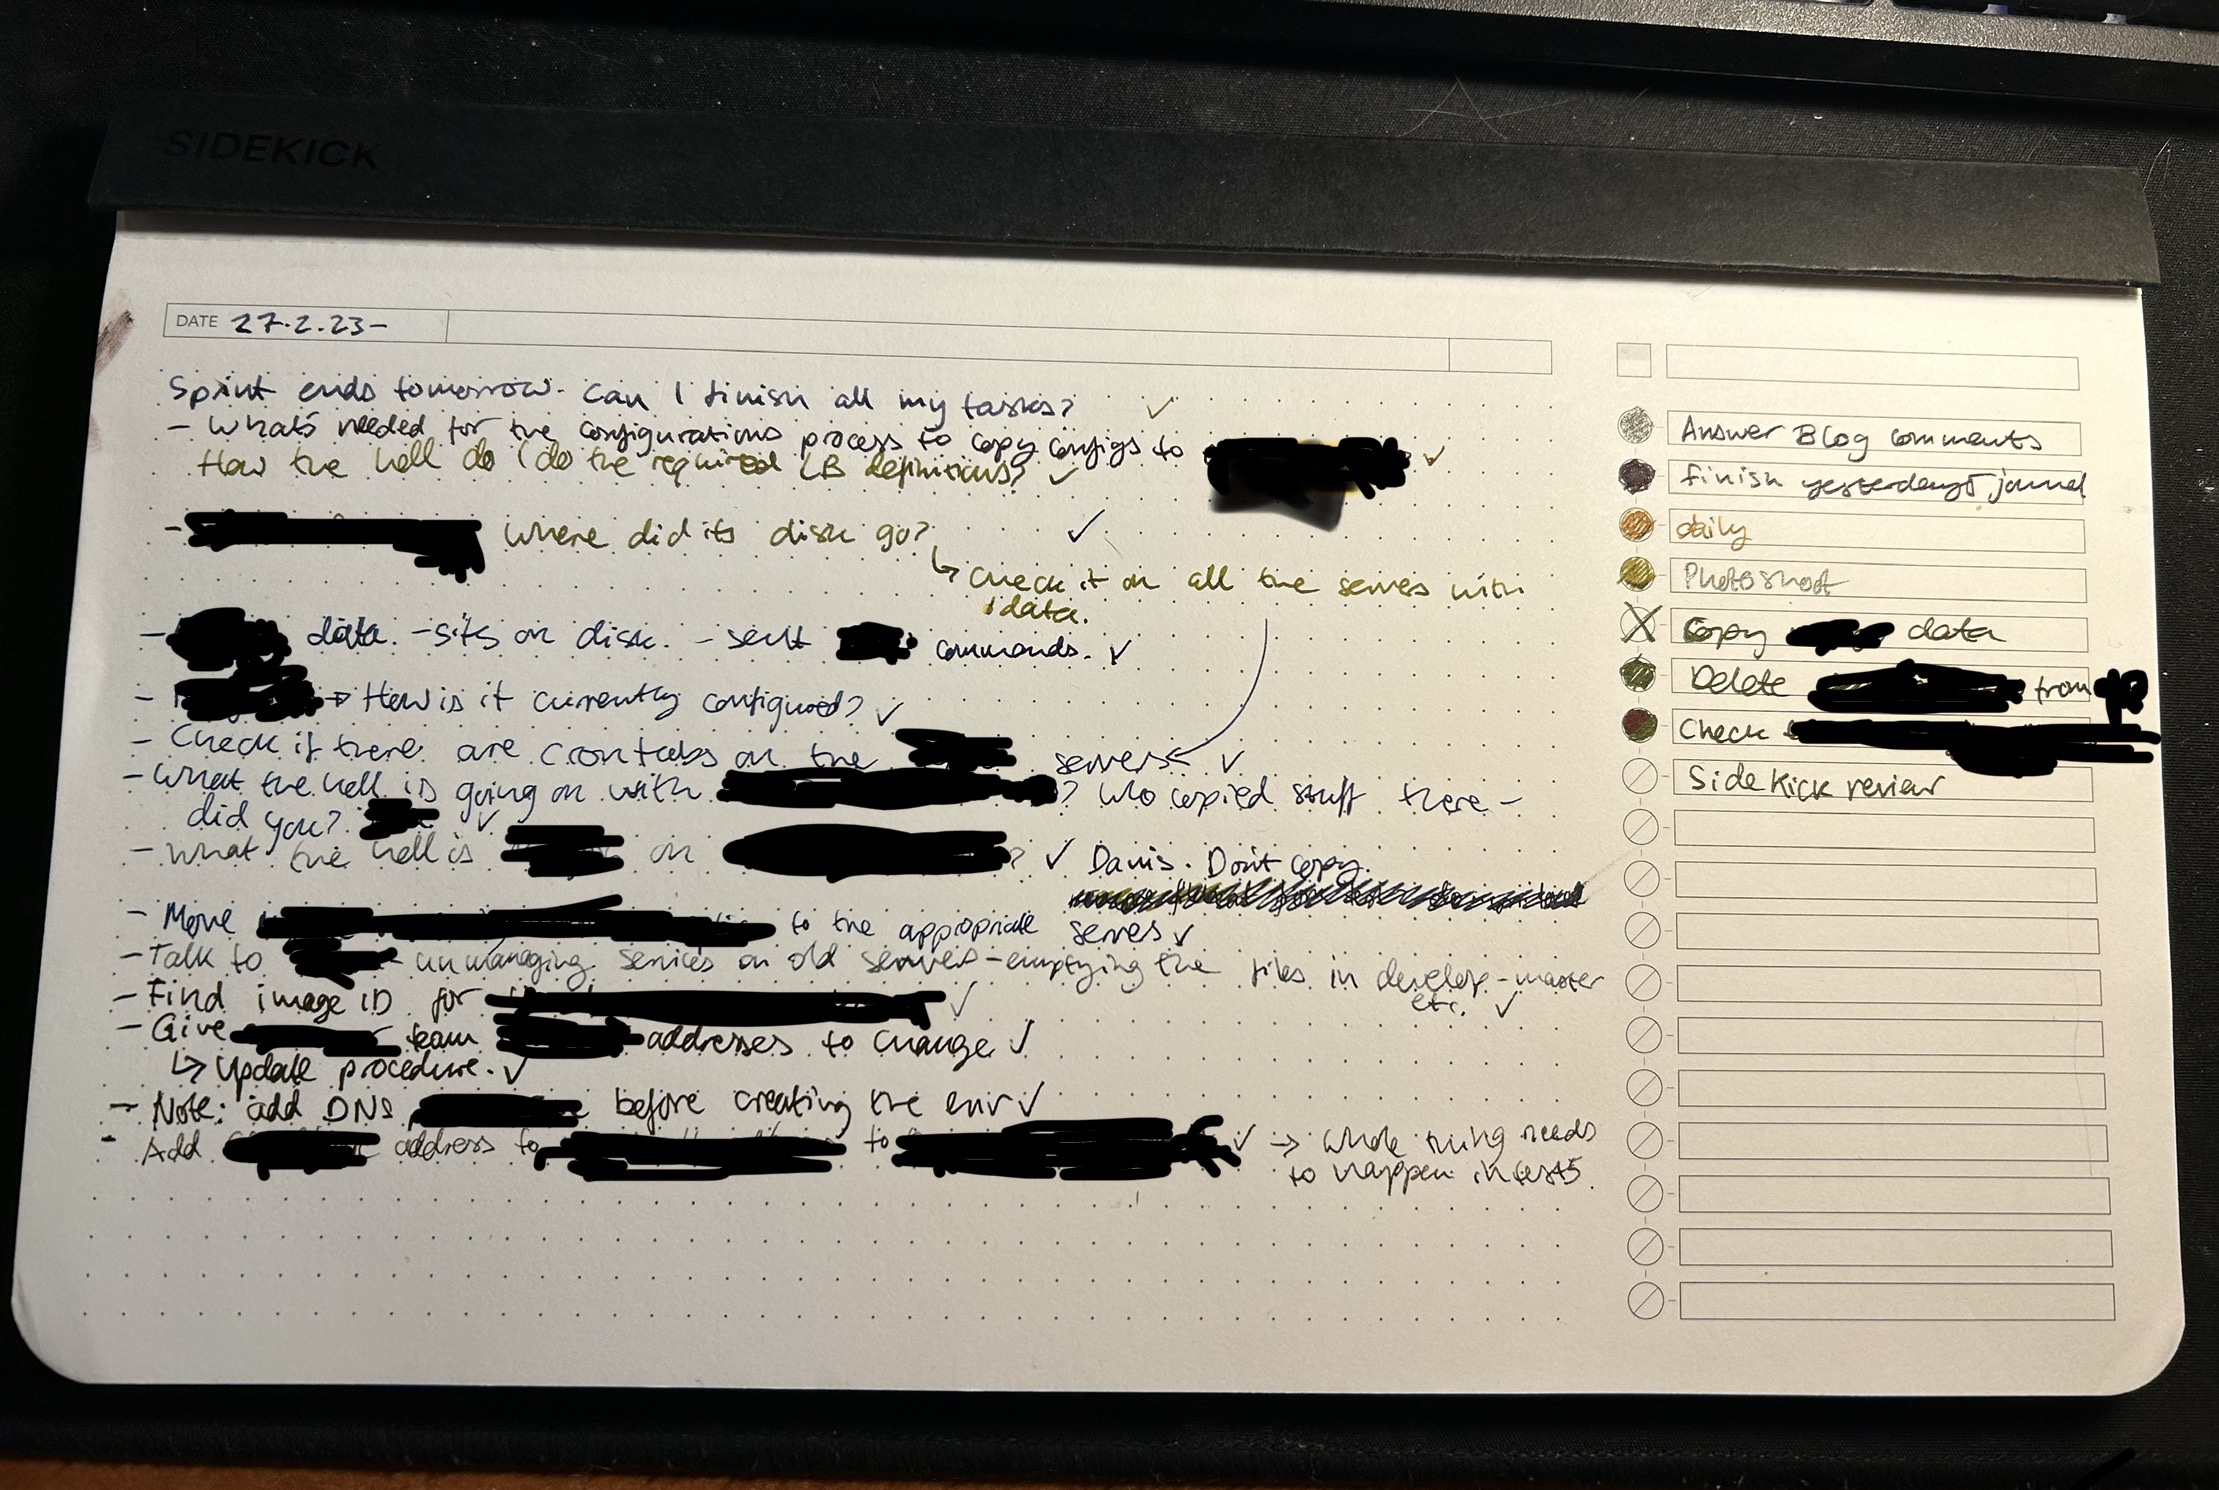 SIDEKICK
DATE 27.2.23-
Sprint ends tomorrow. Can I finish all my tasks?
- What's needed for the configurations process to copy configs to
How the hell do I do the required LB definitions?
- Where did its disk go?
↳ Check it on all the servers with
data.
- data - sits on disk. - sent commands.
- → How is it currently configured?
- Check if there are crontabs on the servers
- What the hell is going on with ? Who copied stuff there -
did you?
- What the hell is on ? Don't copy.
- Move to the appropriate servers
- Talk to - unmanaging services on old servers - emptying the files in develop-master
etc.
- Find image ID for
- Give team addresses to change
↳ Update procedure.
- Note: add DNS before creating the env
- Add address to to → Whole thing needs
to happen in
Answer Blog comments
finish yesterday's journal
daily
Photoshoot
Copy data
Delete from
Check
Sidekick review